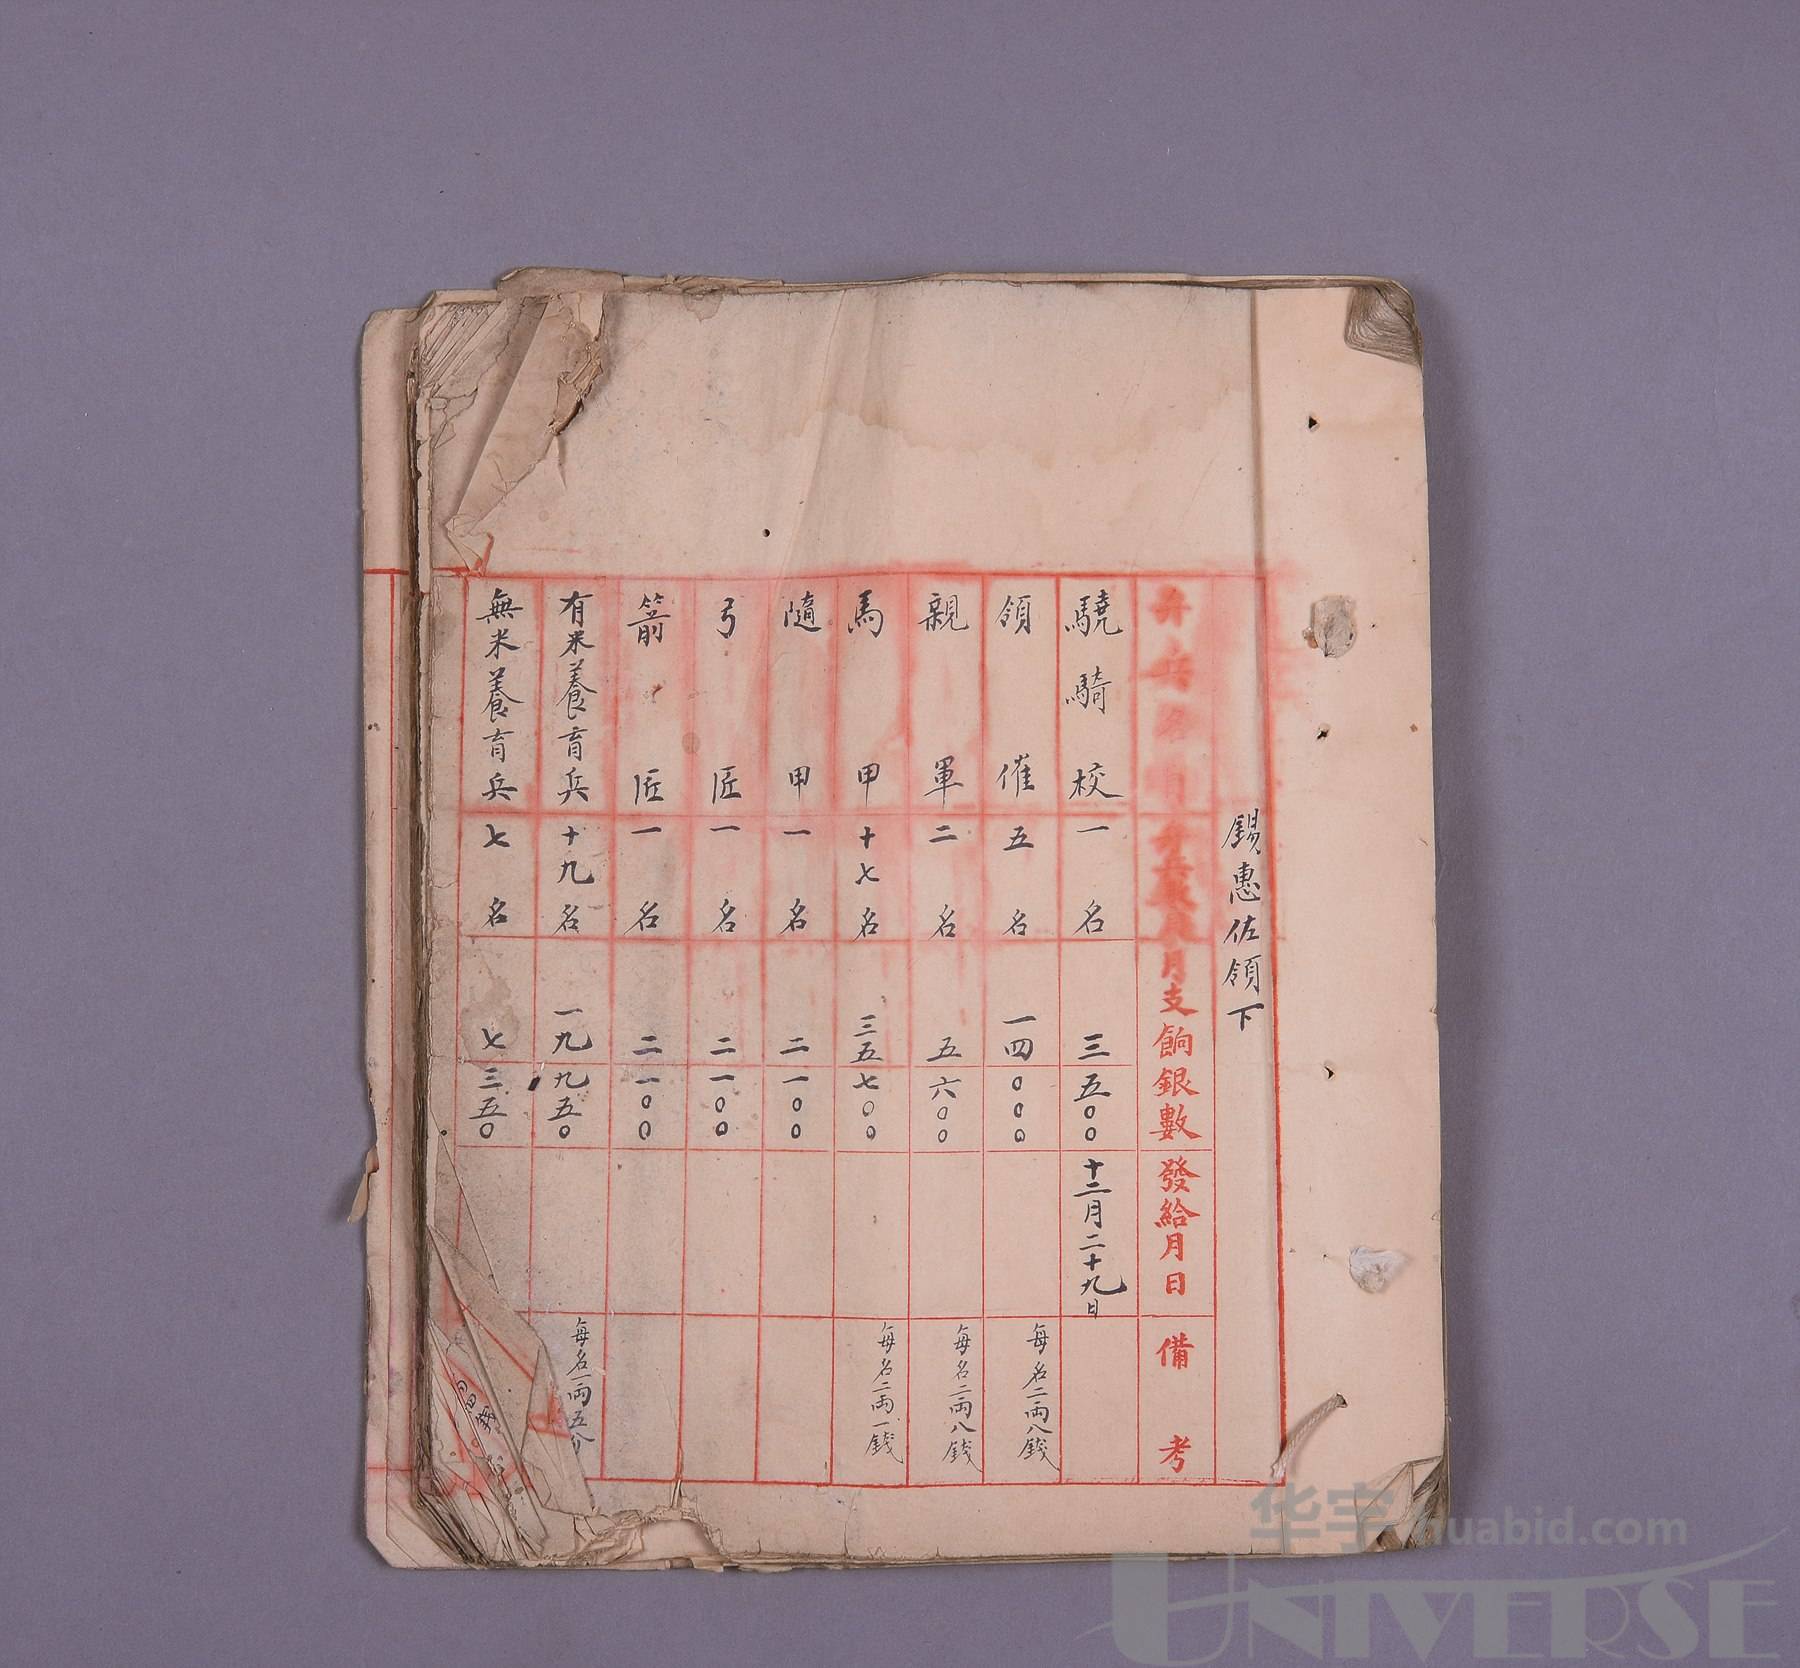 錫惠佐領下
弁兵名目 弁兵數目 月支餉銀數 發給月日 備考
驍騎校 一名 三五〇〇 十二月二十九日
領催 五名 一四〇〇〇 每名二兩八錢
親軍 二名 五六〇〇 每名二兩八錢
馬甲 十七名 三五七〇〇 每名二兩一錢
隨甲 一名 二一〇〇
弓匠 一名 二一〇〇
箭匠 一名 二一〇〇
有米養育兵 十九名 一九九五〇 每名一兩五分
無米養育兵 七名 七三五〇
华宇 huabid.com
UNIVERSE